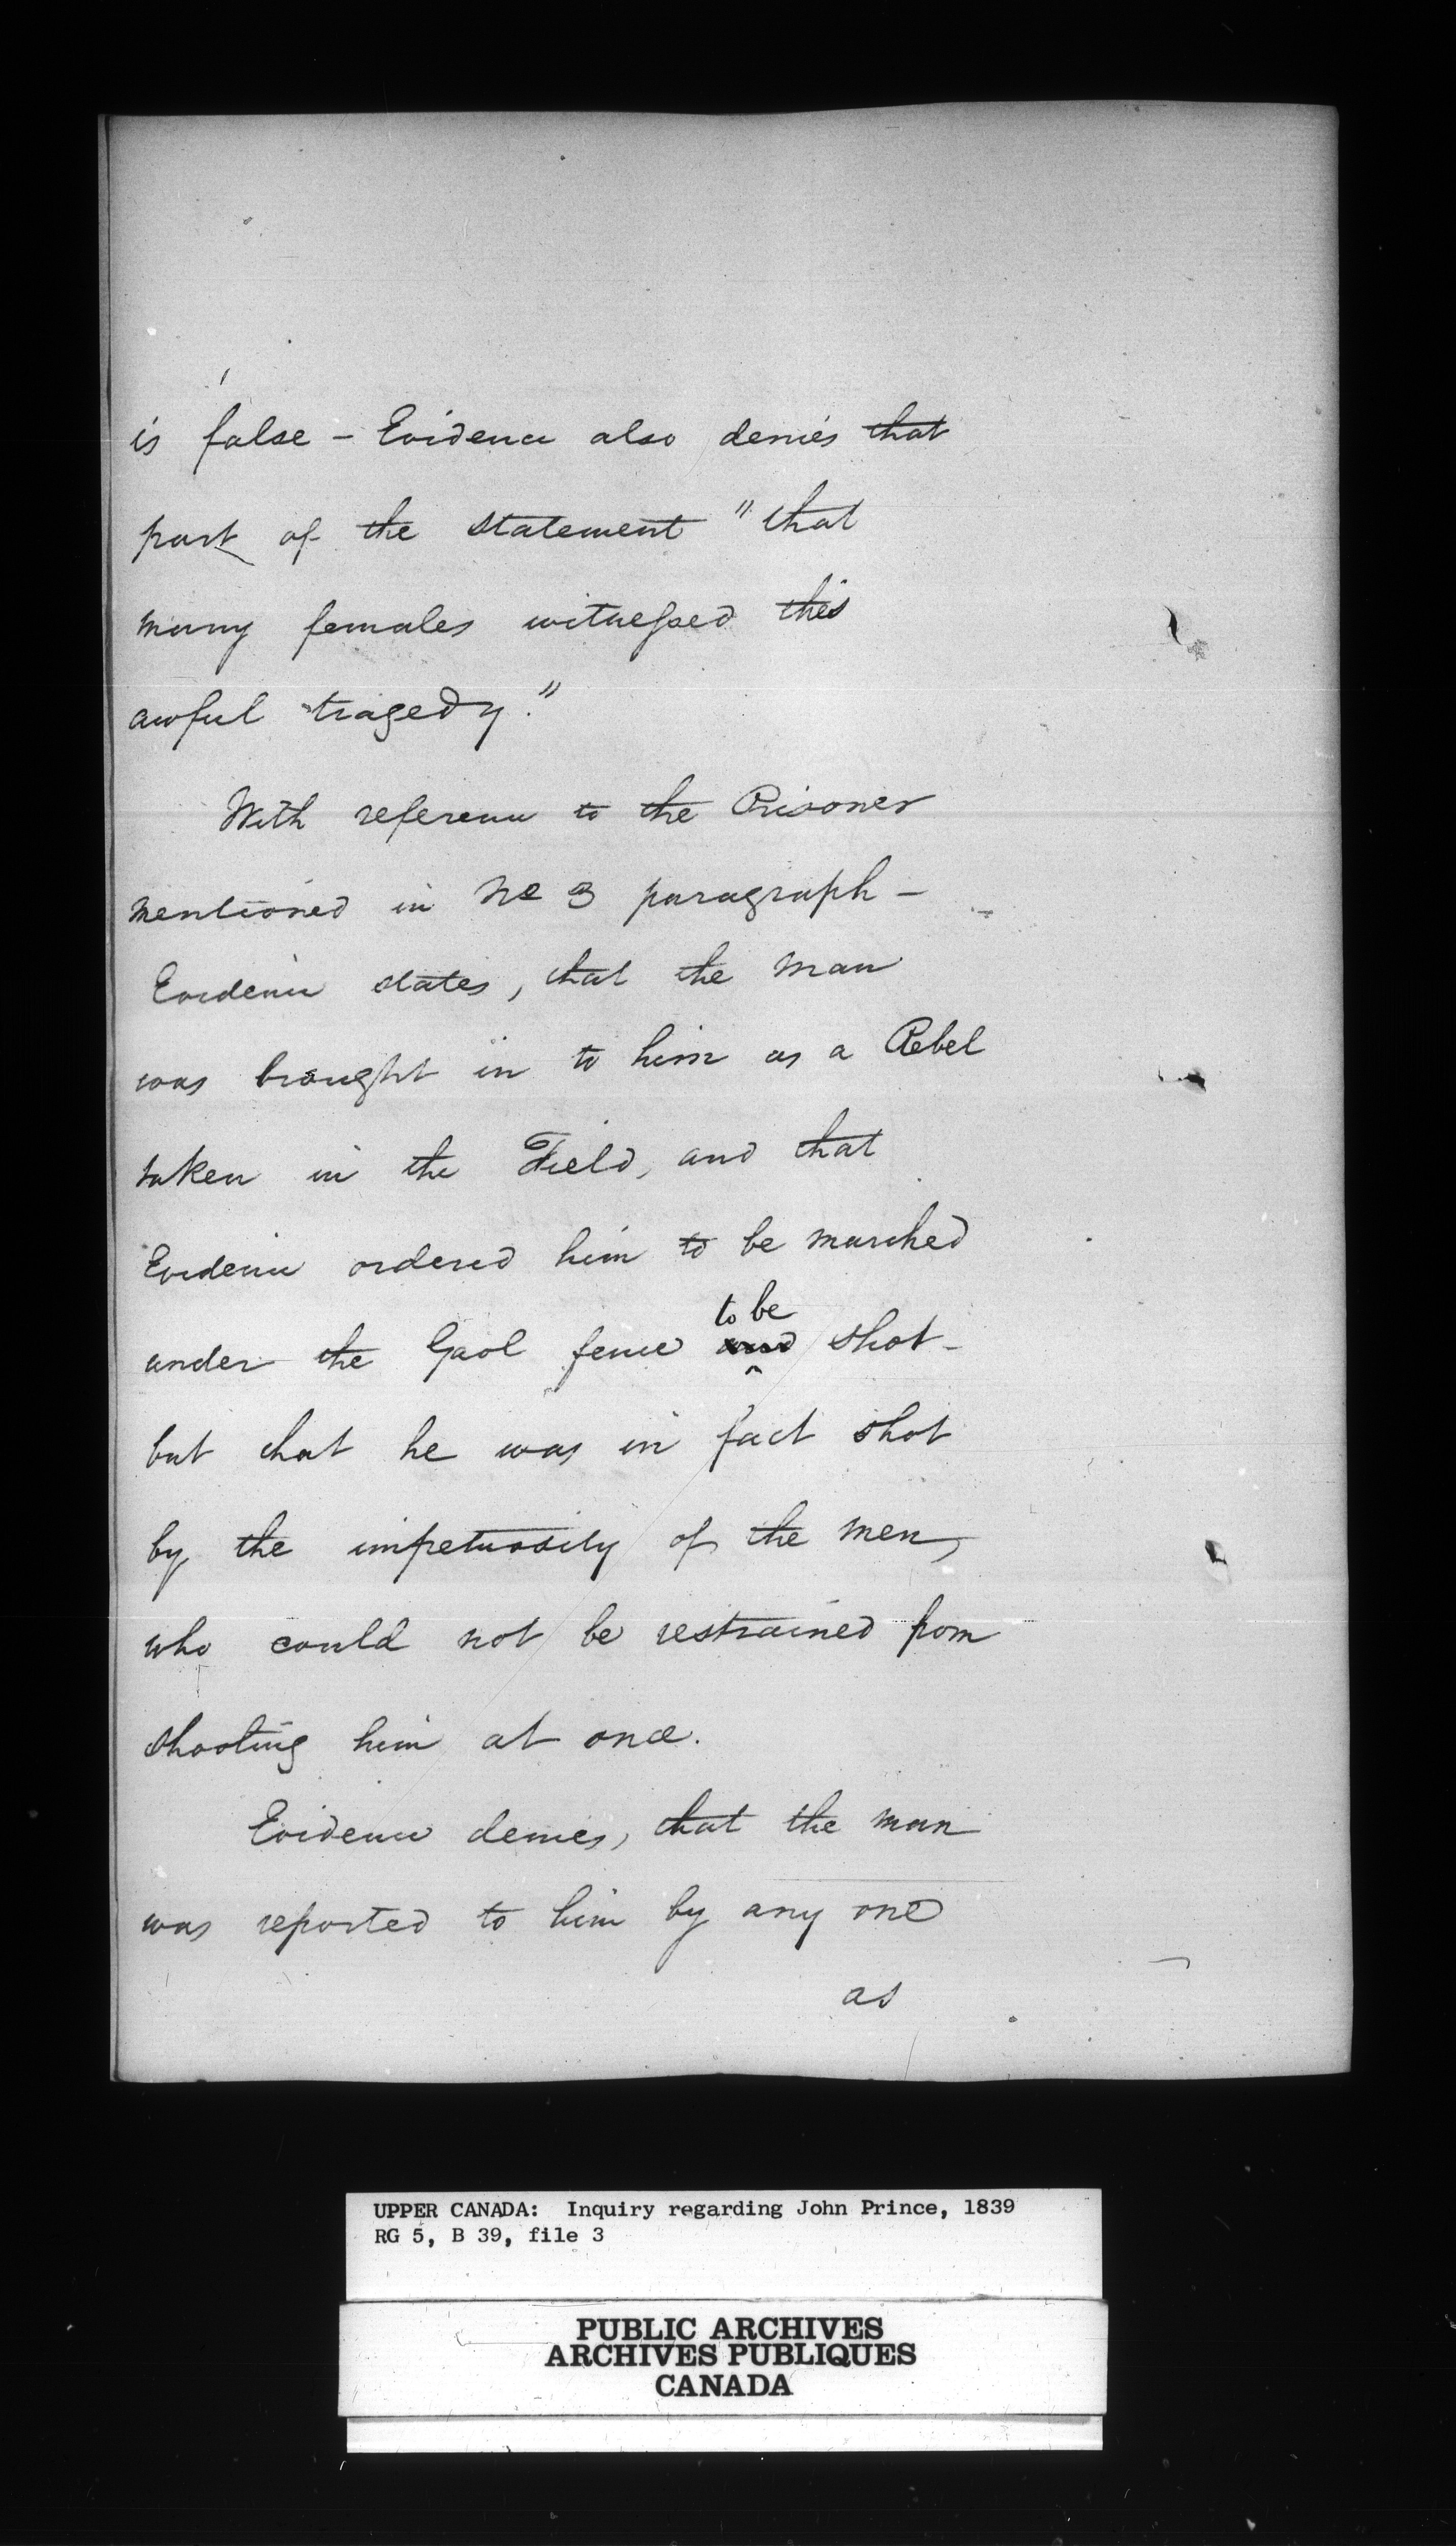 is false - Evidence also denies that
part of the statement "that
many females witnessed this
awful tragedy."
With reference to the Prisoner
mentioned in No 3 paragraph -
Evidence states, that the man
was brought in to him as a Rebel
taken in the Field, and that
Evidence ordered him to be marched
to be
under the Gaol fence and shot -
but that he was in fact shot
by the impetuosity of the men,
who could not be restrained from
shooting him at once.
Evidence denies, that the man
was reported to him by any one
as
UPPER CANADA: Inquiry regarding John Prince, 1839
RG 5, B 39, file 3
PUBLIC ARCHIVES
ARCHIVES PUBLIQUES
CANADA